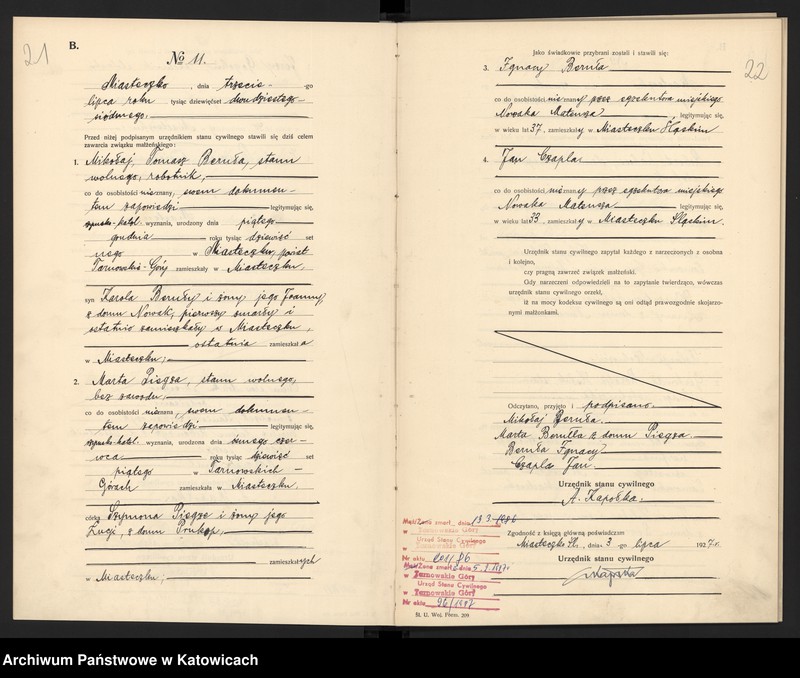 21
B.
№ 11.
Miasteczko, dnia trzecie- -go
lipca roku tysiąc dziewięćset dwudziestego-
siódmego.
Przed niżej podpisanym urzędnikiem stanu cywilnego stawili się dziś celem
zawarcia związku małżeńskiego:
1. Mikołaj, Tomasz Beruła, stanu
wolnego, robotnik,
co do osobistości nieznany, swem dokumen-
tem zapowiedzi legitymując się,
rzymsko-katol. wyznania, urodzony dnia piątego
grudnia roku tysiąc dziewięć set
w Miasteczku, powiat
Tarnowskie-Góry zamieszkały w Miasteczku.
syn Karola Beruły i żony jego Joanny,
z domu Nowak, pierwszy zmarły i
ostatnio zamieszkały w Miasteczku,
ostatnia zamieszkała
w Miasteczku;
2. Marta Piegza, stanu wolnego,
bez zawodu,
co do osobistości nieznana, swem dokumen-
tem zapowiedzi legitymując się,
rzymsko-katol. wyznania, urodzona dnia ósmego czer-
wca roku tysiąc dziewięć set
piątego w Tarnowskich-
Górach zamieszkała w Miasteczku,
córka Szymona Piegzy i żony jego
Łucji, z domu
zamieszkałych
w Miasteczku;
22
jako świadkowie przybrani zostali i stawili się:
3. Ignacy Beruła
co do osobistości nieznany przez egzekutora miejskiego
Nowaka Mateusza legitymując się,
w wieku lat 37, zamieszkały w Miasteczku Śląskim
4. Jan Czapla
co do osobistości nieznany przez egzekutora miejskiego
Nowaka Mateusza legitymując się,
w wieku lat 33, zamieszkały w Miasteczku Śląskim.
Urzędnik stanu cywilnego zapytał każdego z narzeczonych z osobna
i kolejno,
czy pragną zawrzeć związek małżeński.
Gdy narzeczeni odpowiedzieli na to zapytanie twierdząco, wówczas
urzędnik stanu cywilnego orzekł,
iż na mocy kodeksu cywilnego są oni odtąd prawozgodnie skojarzo-
nymi małżonkami.
Odczytano, przyjęto i podpisano.
Mikołaj Beruła.
Marta Berutła z domu Piegza.
Beruła Ignacy
Czapla Jan
Urzędnik stanu cywilnego
Zgodność z księgą główną poświadczam
Miasteczko Śl., dnia 3 -go lipca 1927 r.
Urzędnik stanu cywilnego
Mąż/Żona zmarł dnia 13.3.1986
w Tarnowskie Góry
Urząd Stanu Cywilnego
w Tarnowskie Góry
Nr aktu /86
Mąż/Żona zmarł dnia
w Tarnowskie Góry
Urząd Stanu Cywilnego
w Tarnowskie Góry
Nr aktu
M. U. Woj. Form. 209
Archiwum Państwowe w Katowicach